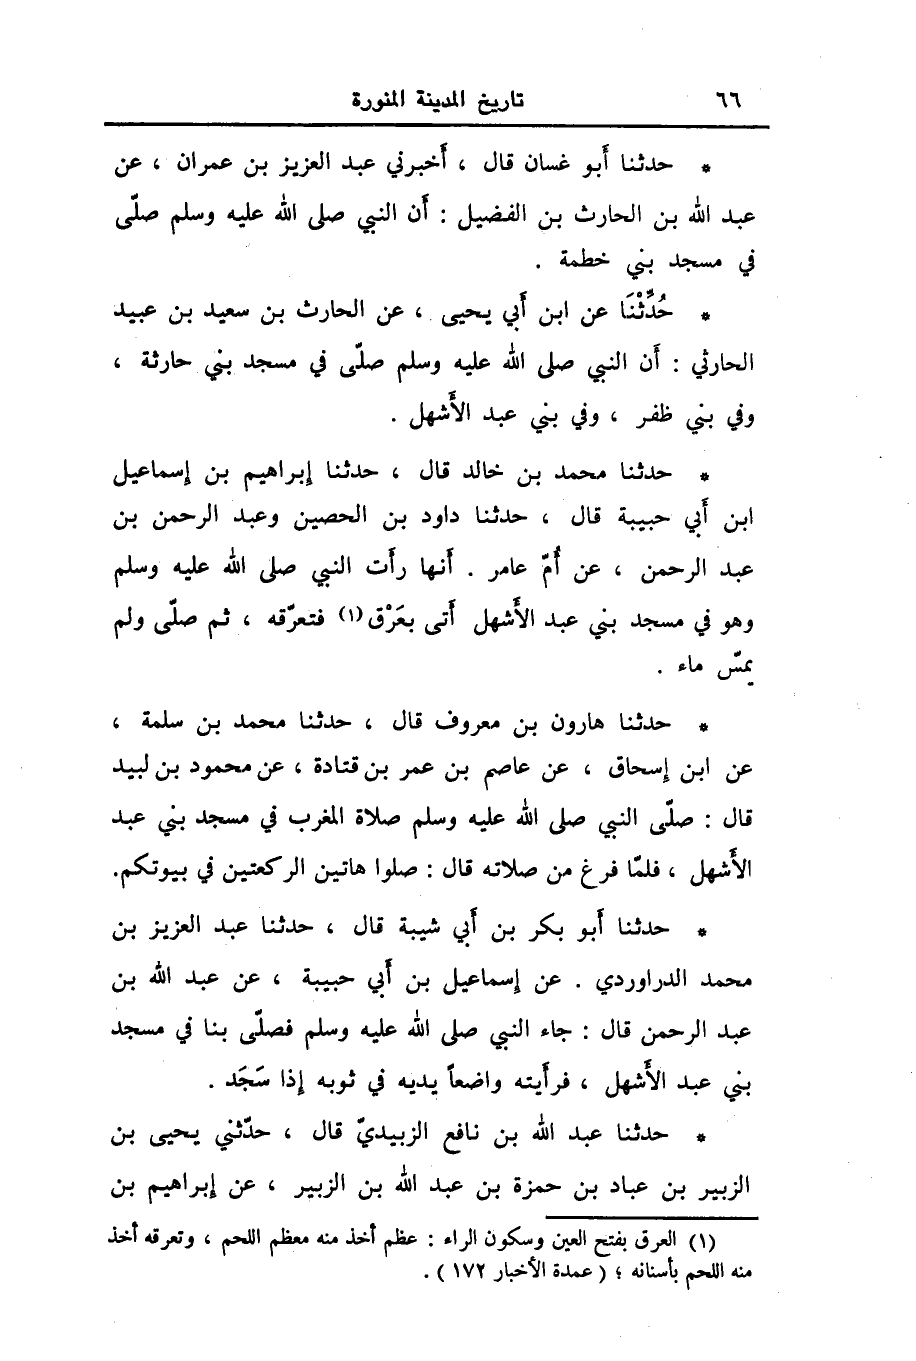 ٦٦ تاريخ المدينة المنورة
* حدثنا أبو غسان قال ، أخبرني عبد العزيز بن عمران ، عن
عبد الله بن الحارث بن الفضيل : أن النبي صلى الله عليه وسلم صلّى
في مسجد بني خطمة .
* حُدِّثْنَا عن ابن أبي يحيى ، عن الحارث بن سعيد بن عبيد
الحارثي : أن النبي صلى الله عليه وسلم صلّى في مسجد بني حارثة ،
وفي بني ظفر ، وفي بني عبد الأشهل .
* حدثنا محمد بن خالد قال ، حدثنا إبراهيم بن إسماعيل
ابن أبي حبيبة قال ، حدثنا داود بن الحصين وعبد الرحمن بن
عبد الرحمن ، عن أُمّ عامر . أنها رأت النبي صلى الله عليه وسلم
وهو في مسجد بني عبد الأشهل أتى بعَرْق (١) فتعرّقه ، ثم صلّى ولم
يمسّ ماء .
* حدثنا هارون بن معروف قال ، حدثنا محمد بن سلمة ،
عن ابن إسحاق ، عن عاصم بن عمر بن قتادة ، عن محمود بن لبيد
قال : صلّى النبي صلى الله عليه وسلم صلاة المغرب في مسجد بني عبد
الأشهل ، فلمّا فرغ من صلاته قال : صلوا هاتين الركعتين في بيوتكم.
* حدثنا أبو بكر بن أبي شيبة قال ، حدثنا عبد العزيز بن
محمد الدراوردي . عن إسماعيل بن أبي حبيبة ، عن عبد الله بن
عبد الرحمن قال : جاء النبي صلى الله عليه وسلم فصلّى بنا في مسجد
بني عبد الأشهل ، فرأيته واضعاً يديه في ثوبه إذا سَجَد .
* حدثنا عبد الله بن نافع الزبيديّ قال ، حدّثني يحيى بن
الزبير بن عباد بن حمزة بن عبد الله بن الزبير ، عن إبراهيم بن
(١) العرق بفتح العين وسكون الراء : عظم أخذ منه معظم اللحم ، وتعرقه أخذ
منه اللحم بأسنانه ؛ ( عمدة الأخبار ١٧٢ ) .